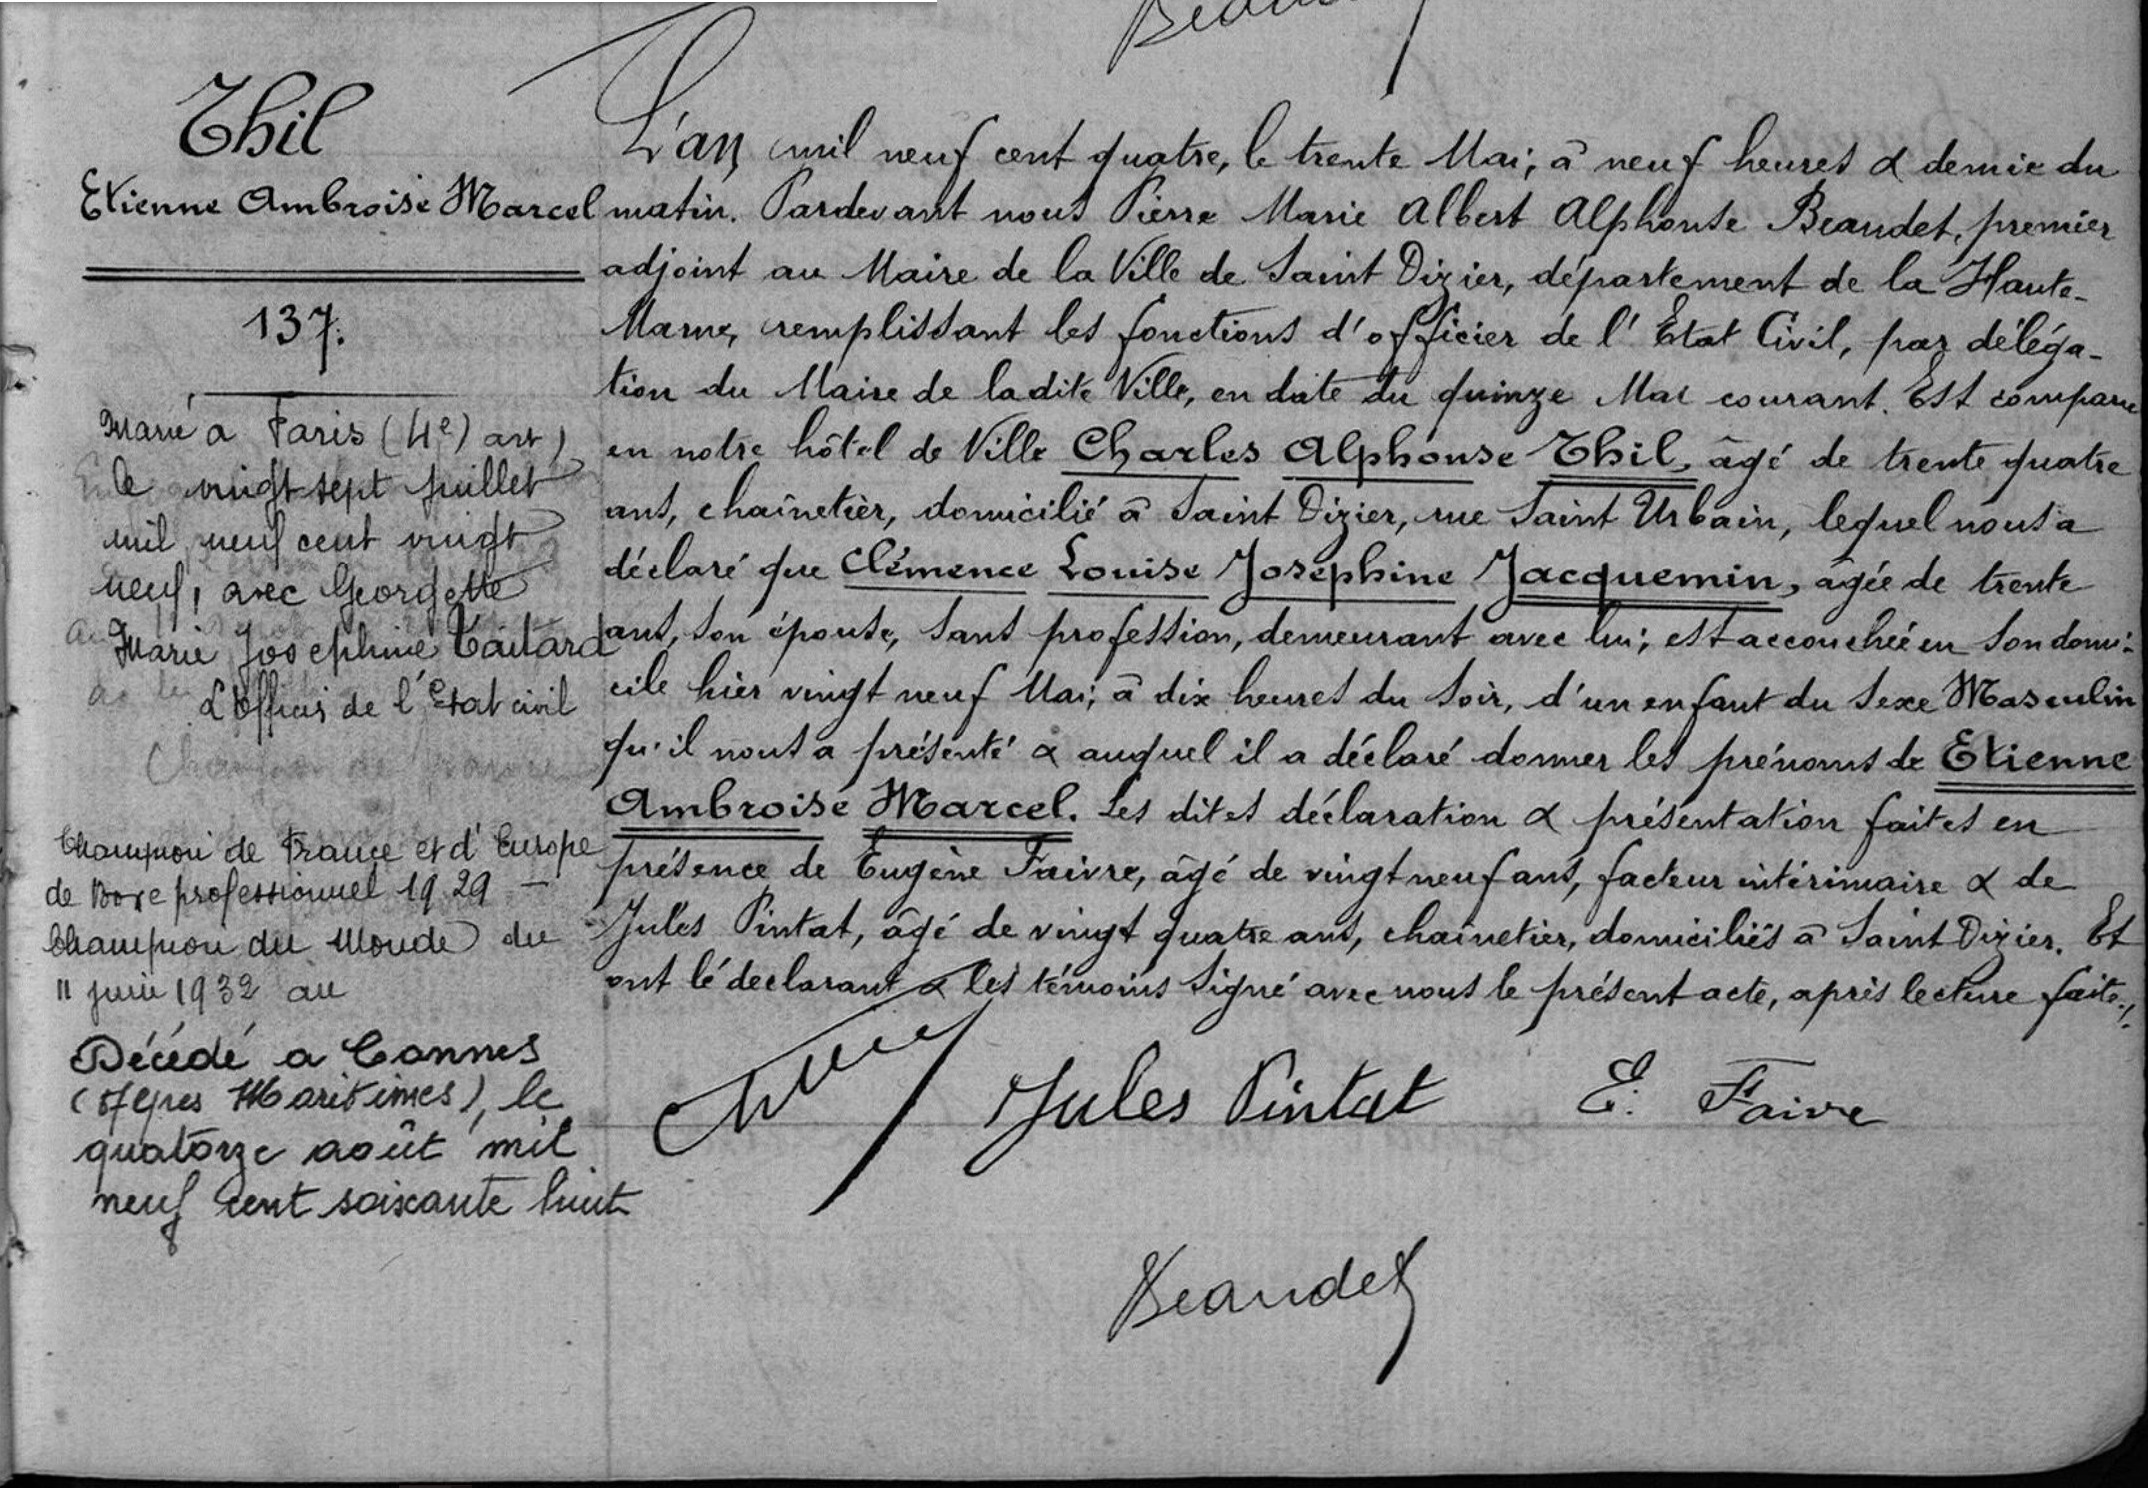 Beaudet
Thil
Etienne Ambroise Marcel
137.
Marié à Paris (4e) art
le vingt sept juillet
mil neuf cent vingt
neuf, avec Georgette
Marie Josephine Taitard
L'Officier de l'Etat civil
Champion de France et d'Europe
de Boxe professionnel 1929 –
Champion du Monde du
11 juin 1932 au
Décédé a Cannes
(Alpes Maritimes), le
quatorze août mil
neuf cent soixante huit
L'an mil neuf cent quatre, le trente Mai, à neuf heures & demie du
matin. Pardevant nous Pierre Marie Albert Alphonse Beaudet, premier
adjoint au Maire de la Ville de Saint Dizier, département de la Haute-
Marne, remplissant les fonctions d'officier de l'Etat Civil, par déléga-
tion du Maire de ladite Ville, en date du quinze Mai courant. Est comparu
en notre hôtel de Ville Charles Alphonse Thil, âgé de trente quatre
ans, chaînetier, domicilié à Saint Dizier, rue Saint Urbain, lequel nous a
déclaré que Clémence Louise Joséphine Jacquemin, âgée de trente
ans, son épouse, sans profession, demeurant avec lui; est accouchée en son domi-
cile hier vingt neuf Mai, à dix heures du soir, d'un enfant du sexe Masculin
qu'il nous a présenté & auquel il a déclaré donner les prénoms de Etienne
Ambroise Marcel. Les dites déclaration & présentation faites en
présence de Eugène Faivre, âgé de vingt neuf ans, facteur intérimaire & de
Jules Pintat, âgé de vingt quatre ans, chaînetier, domiciliés à Saint Dizier. Et
ont le déclarant & les témoins signé avec nous le présent acte, après lecture faite./.
Jules Pintat E. Faivre
Beaudet